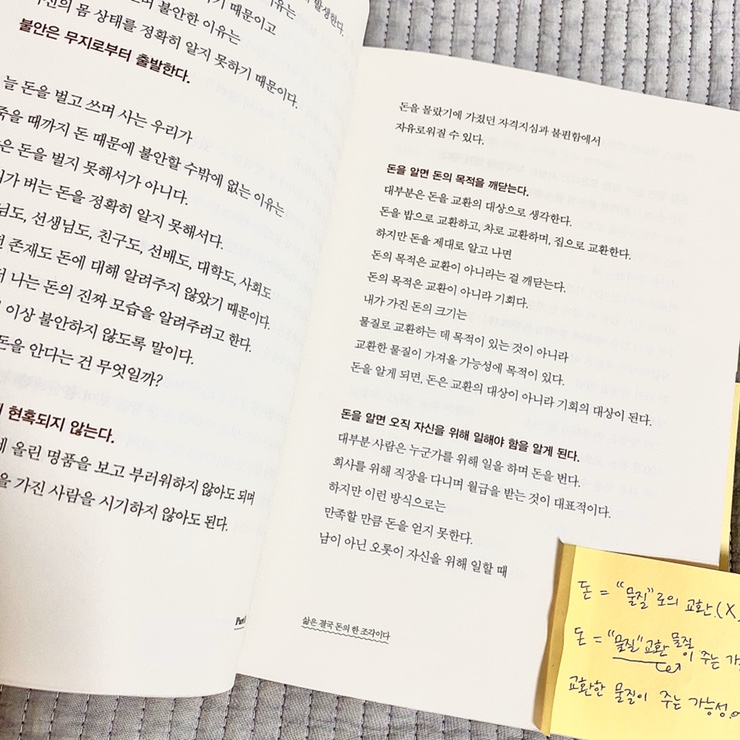 발생한다.
때문이고
불안한 이유는
몸 상태를 정확히 알지 못하기 때문이다.
불안은 무지로부터 출발한다.
늘 돈을 벌고 쓰며 사는 우리가
때까지 돈 때문에 불안할 수밖에 없는 이유는
돈을 벌지 못해서가 아니다.
버는 돈을 정확히 알지 못해서다.
선생님도, 친구도, 선배도, 대학도, 사회도
존재도 돈에 대해 알려주지 않았기 때문이다.
나는 돈의 진짜 모습을 알려주려고 한다.
이상 불안하지 않도록 말이다.
돈을 안다는 건 무엇일까?
현혹되지 않는다.
올린 명품을 보고 부러워하지 않아도 되며
가진 사람을 시기하지 않아도 된다.
돈을 몰랐기에 가졌던 자격지심과 불편함에서
자유로워질 수 있다.
돈을 알면 돈의 목적을 깨닫는다.
대부분은 돈을 교환의 대상으로 생각한다.
돈을 밥으로 교환하고, 차로 교환하며, 집으로 교환한다.
하지만 돈을 제대로 알고 나면
돈의 목적은 교환이 아니라는 걸 깨닫는다.
돈의 목적은 교환이 아니라 기회다.
내가 가진 돈의 크기는
물질로 교환하는 데 목적이 있는 것이 아니라
교환한 물질이 가져올 가능성에 목적이 있다.
돈을 알게 되면, 돈은 교환의 대상이 아니라 기회의 대상이 된다.
돈을 알면 오직 자신을 위해 일해야 함을 알게 된다.
대부분 사람은 누군가를 위해 일을 하며 돈을 번다.
회사를 위해 직장을 다니며 월급을 받는 것이 대표적이다.
하지만 이런 방식으로는
만족할 만큼 돈을 얻지 못한다.
남이 아닌 오롯이 자신을 위해 일할 때
삶은 결국 돈의 한 조각이다
돈 = "물질"로의 교환.(X)
돈 = "물질"교환 물질이 주는
교환한 물질이 주는 가능성.